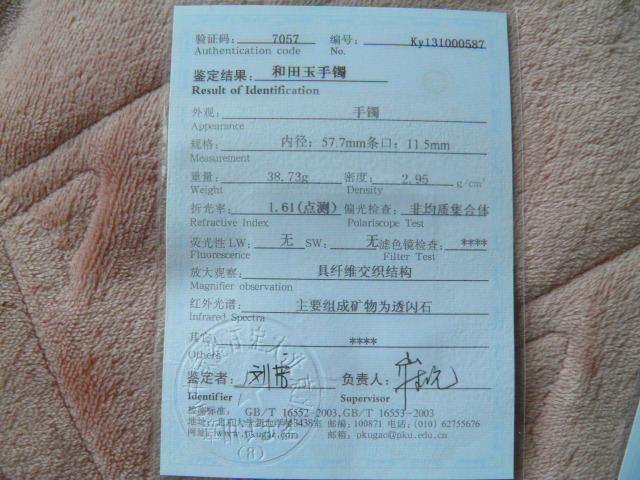 验证码: 7057 编号: Ky131000587
Authentication code No.
鉴定结果: 和田玉手镯
Result of Identification
外观: 手镯
Appearance
规格: 内径: 57.7mm条口: 11.5mm
Measurement
重量: 38.73g 密度: 2.95 g/cm³
Weight Density
折光率: 1.61(点测) 偏光检查: 非均质集合体
Refractive Index Polariscope Test
荧光性 LW: 无 SW: 无 滤色镜检查: ****
Fluorescence Filter Test
放大观察: 具纤维交织结构
Magnifier observation
红外光谱: 主要组成矿物为透闪石
Infrared Spectra
其它: ****
Others
鉴定者: 负责人:
Identifier Supervisor
检验标准: GB/T 16552-2003,GB/T 16553-2003
地址: 北京大学新地学楼3438室 邮编: 100871 电话: (010) 62755676
网址: www.pkugac.com 邮箱: pkugac@pku.edu.cn
(8)